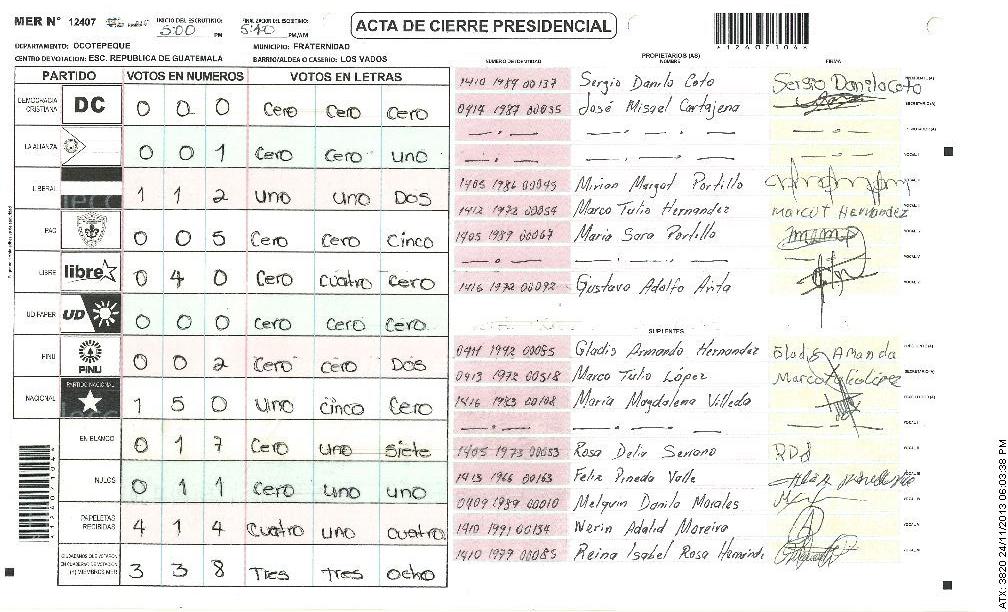 MER N° 12407 INICIO DEL ESCRUTINIO: 5:00 PM FINALIZACION DEL ESCRUTINIO: 5:40 PM/AM
ACTA DE CIERRE PRESIDENCIAL
12407104
DEPARTAMENTO: OCOTEPEQUE MUNICIPIO: FRATERNIDAD
CENTRO DE VOTACION: ESC. REPUBLICA DE GUATEMALA BARRIO/ALDEA O CASERIO: LOS VADOS
PARTIDO VOTOS EN NUMEROS VOTOS EN LETRAS
DEMOCRACIA CRISTIANA DC 0 0 0 Cero Cero Cero
LA ALIANZA 0 0 1 Cero Cero uno
LIBERAL 1 1 2 uno uno Dos
PAC 0 0 5 Cero Cero Cinco
LIBRE libre 0 4 0 Cero cuatro Cero
UD FAPER UD 0 0 0 Cero Cero Cero
PINU PINU 0 0 2 Cero Cero Dos
NACIONAL PARTIDO NACIONAL 1 5 0 Uno cinco Cero
EN BLANCO 0 1 7 Cero uno siete
NULOS 0 1 1 Cero uno uno
PAPELETAS RECIBIDAS 4 1 4 Cuatro uno cuatro
CIUDADANOS QUE VOTARON EN CUADERNO DE VOTACION (+) MIEMBROS MER 3 3 8 Tres Tres ocho
PROPIETARIOS (AS)
NUMERO DE IDENTIDAD NOMBRE FIRMA
1410 1989 00137 Sergio Danilo Coto Sergio Danilo Coto
0414 1987 00035 José Misael Cartajena
1405 1986 00045 Mirian Margot Portillo
1412 1972 00054 Marco Tulio Hernandez Marco T Hernandez
1405 1987 00067 Maria Sara Portillo
1416 1972 00092 Gustavo Adolfo Arita
SUPLENTES
0411 1992 00085 Gladis Armando Hernandez
0413 1972 00518 Marco Tulio López Marco Tulio López
1416 1983 00108 Maria Magdalena Villeda
1405 1973 00053 Rosa Delia Serrano RDS
1413 1966 00163 Feliz Pineda Valle
0409 1989 00010 Melquin Danilo Morales
1410 1991 00134 Nerin Adalid Moreira
1410 1979 00085 Reina Isabel Rosa Hernández
ATX: 3820 24/11/2013 06:03:38 PM